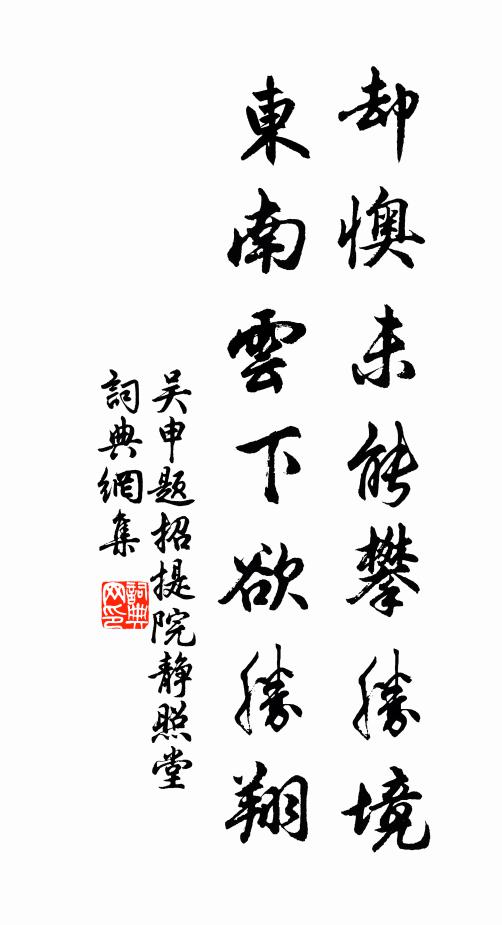 却懊未能攀勝境
東南雲下欲勝翔
吴申题招提院静照堂
詞典網集
詞典
网印